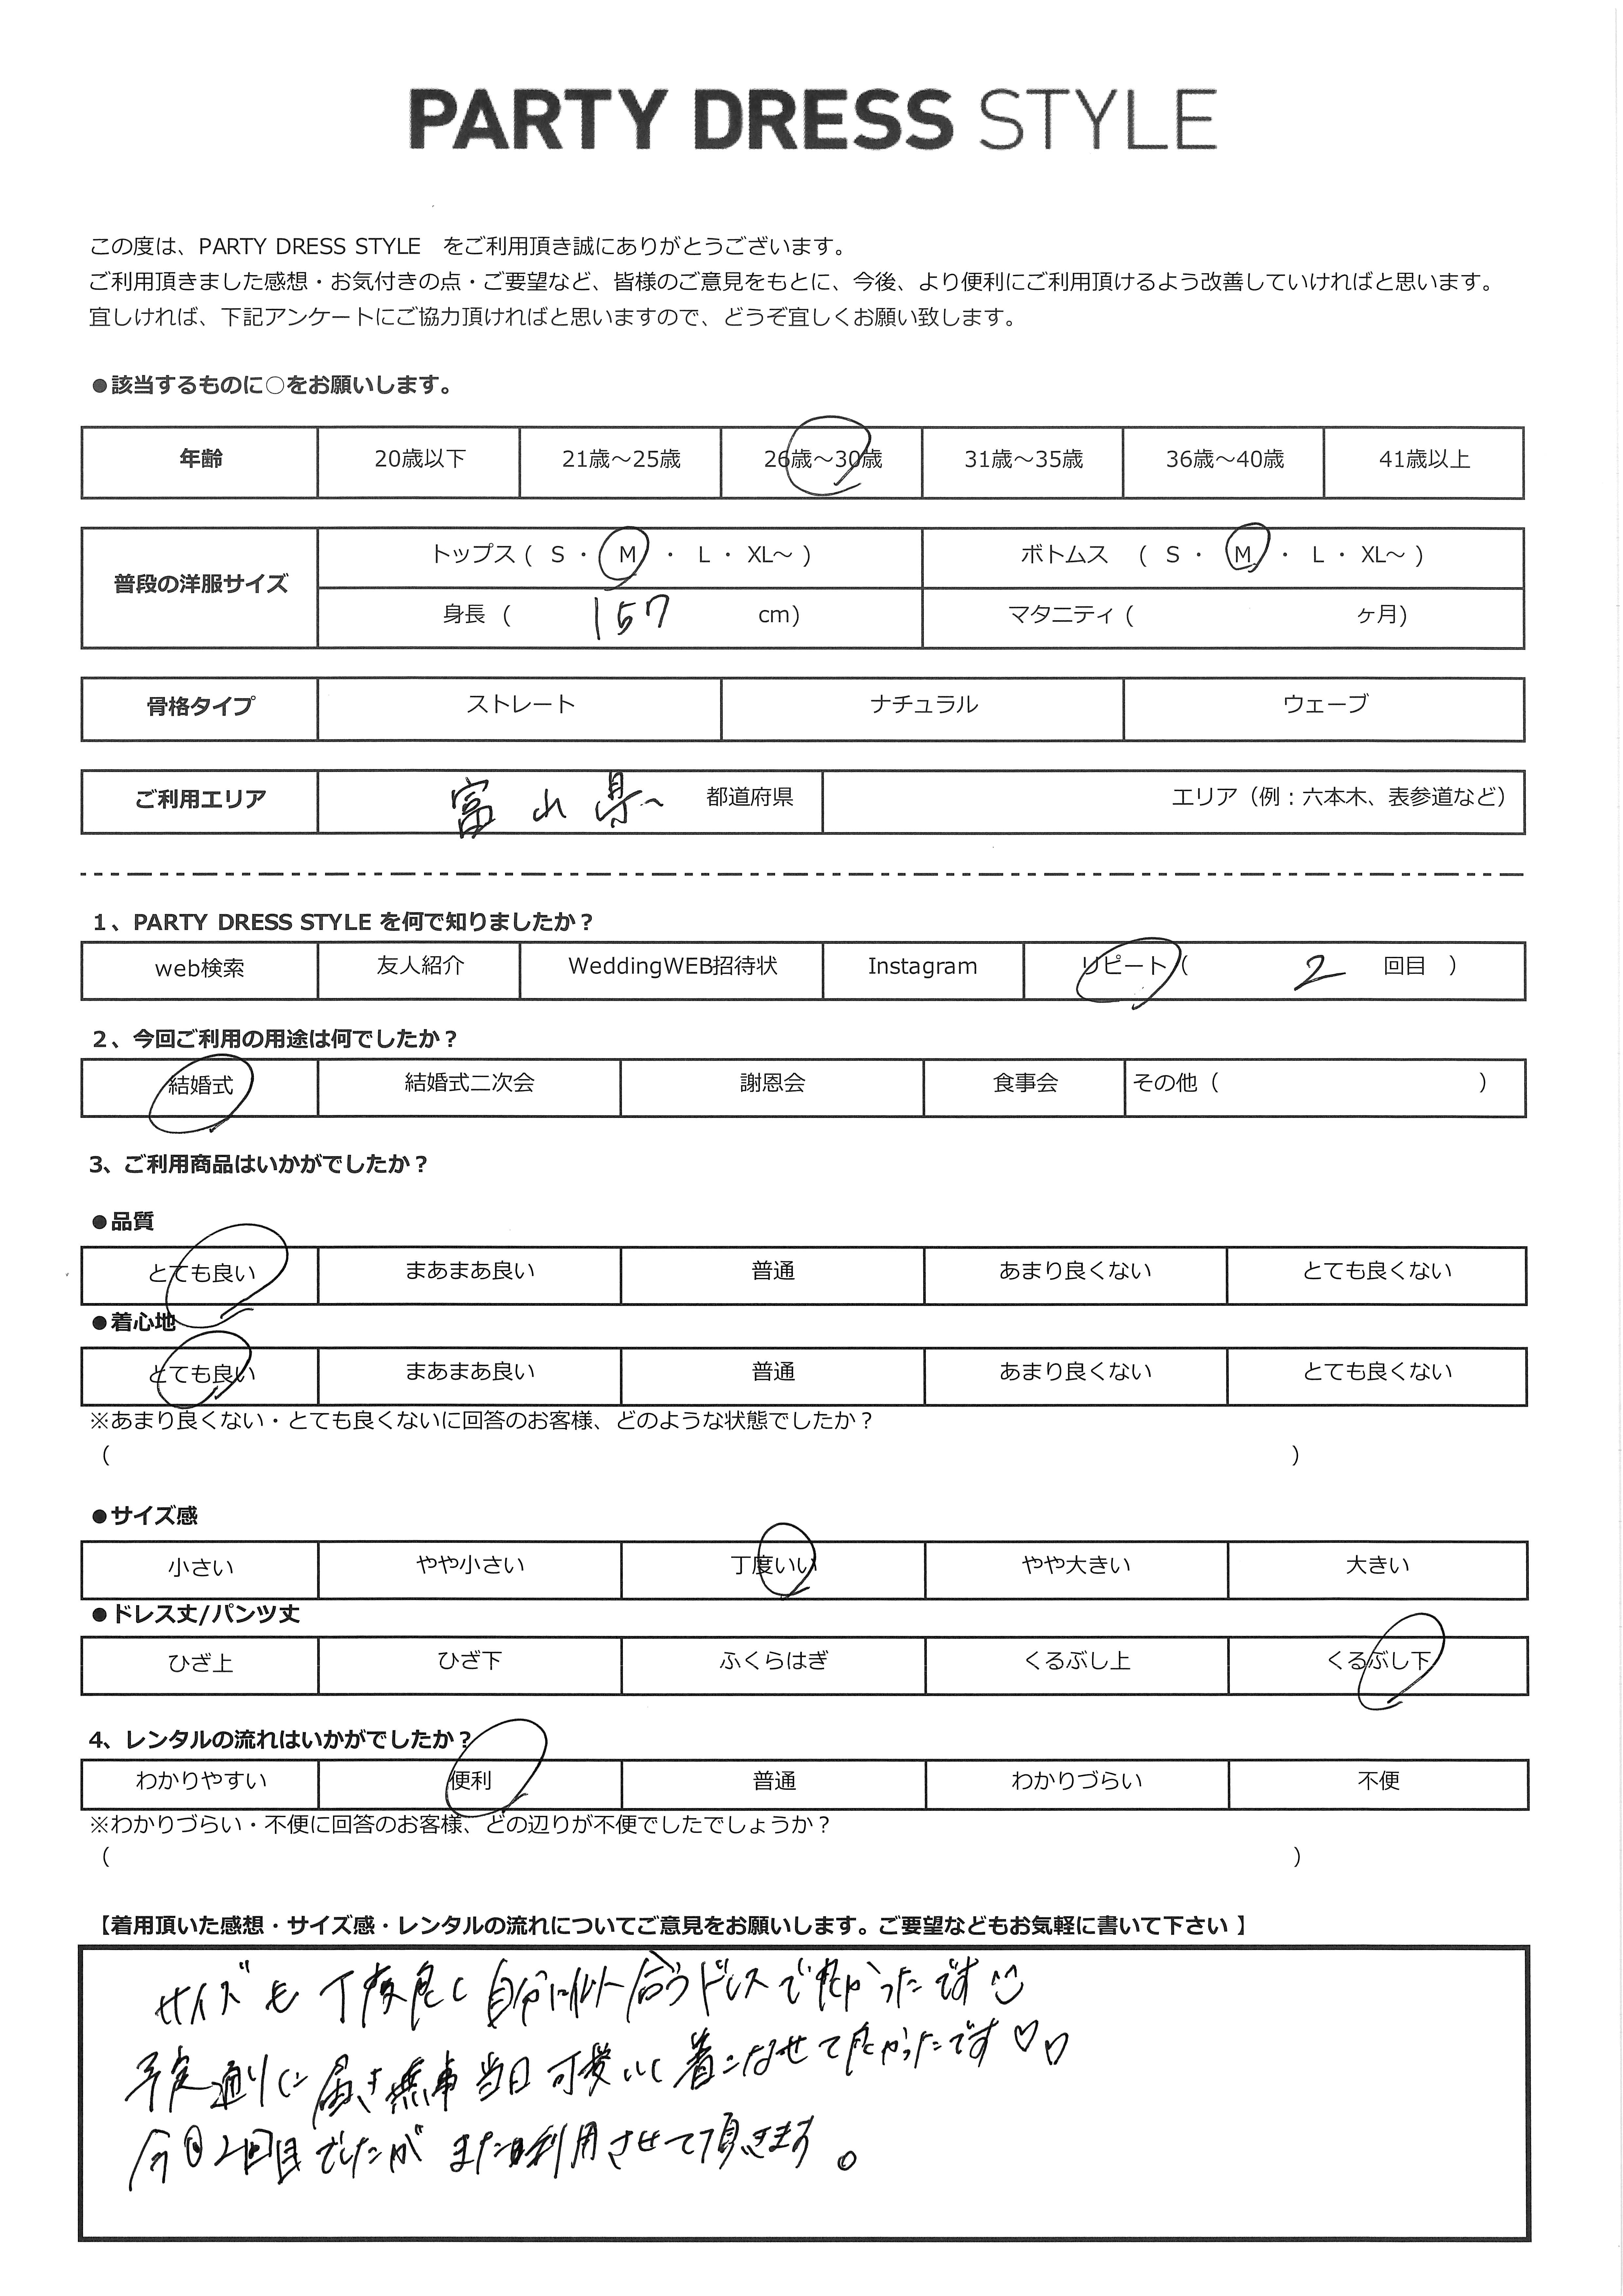 PARTY DRESS STYLE
この度は、PARTY DRESS STYLE をご利用頂き誠にありがとうございます。
ご利用頂きました感想・お気付きの点・ご要望など、皆様のご意見をもとに、今後、より便利にご利用頂けるよう改善していければと思います。
宜しければ、下記アンケートにご協力頂ければと思いますので、どうぞ宜しくお願い致します。
●該当するものに○をお願いします。
年齢 20歳以下 21歳～25歳 26歳～30歳 31歳～35歳 36歳～40歳 41歳以上
普段の洋服サイズ トップス ( S ・ M ・ L ・ XL～ ) ボトムス ( S ・ M ・ L ・ XL～ )
身長 ( 157 cm) マタニティ ( ヶ月)
骨格タイプ ストレート ナチュラル ウェーブ
ご利用エリア 富山県 都道府県 エリア（例：六本木、表参道など）
1、PARTY DRESS STYLE を何で知りましたか？
web検索 友人紹介 WeddingWEB招待状 Instagram リピート（ 2 回目 ）
2、今回ご利用の用途は何でしたか？
結婚式 結婚式二次会 謝恩会 食事会 その他（ ）
3、ご利用商品はいかがでしたか？
●品質
とても良い まあまあ良い 普通 あまり良くない とても良くない
●着心地
とても良い まあまあ良い 普通 あまり良くない とても良くない
※あまり良くない・とても良くないに回答のお客様、どのような状態でしたか？
（ ）
●サイズ感
小さい やや小さい 丁度いい やや大きい 大きい
●ドレス丈/パンツ丈
ひざ上 ひざ下 ふくらはぎ くるぶし上 くるぶし下
4、レンタルの流れはいかがでしたか？
わかりやすい 便利 普通 わかりづらい 不便
※わかりづらい・不便に回答のお客様、どの辺りが不便でしたでしょうか？
（ ）
【着用頂いた感想・サイズ感・レンタルの流れについてご意見をお願いします。ご要望などもお気軽に書いて下さい 】
サイズも丁度良く自分に似合うドレスで良かったです
予定通りに届き無事当日可愛いく着こなせて良かったです♡♡
今回2回目でしたがまた利用させて頂きます。